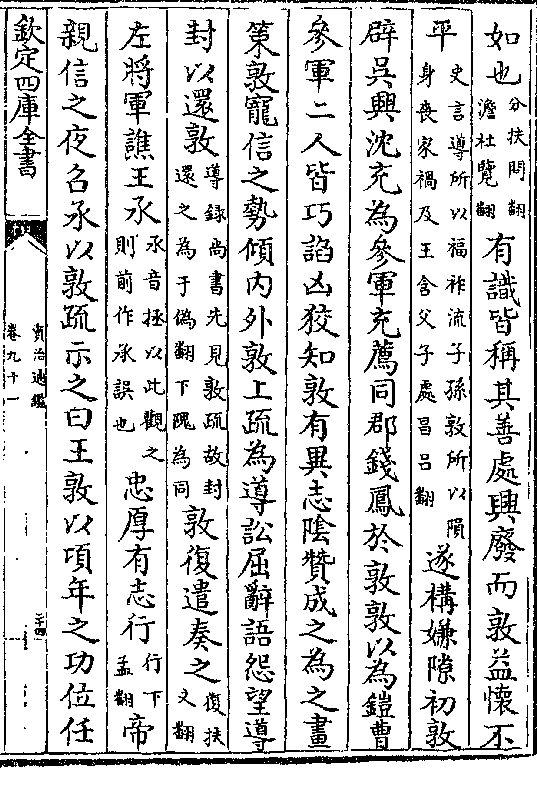 如也分扶問翻澹杜覽翻有識皆稱其善處興廢而敦益懷不
平史言導所以福祚流子孫敦所以隕身喪家禍及王含父子處昌呂翻遂構嫌隙初敦
辟吳興沈充為參軍充薦同郡錢鳳於敦敦以為鎧曹
參軍二人皆巧諂凶狡知敦有異志陰贊成之為之畫
策敦寵信之勢傾內外敦上疏為導訟屈辭語怨望導
封以還敦導録尚書先見敦疏故封還之為于偽翻下隗為同敦復遣奏之復扶又翻
左將軍譙王氶氶音拯以此觀之則前作承誤也忠厚有志行行下孟翻帝
親信之夜召氶以敦疏示之曰王敦以頃年之功位任
欽定四庫全書
資治通鑑
卷九十一
二十四